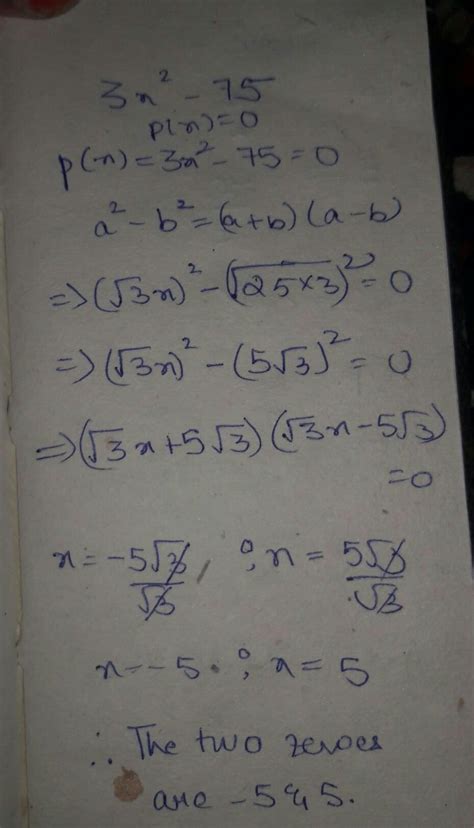 3x² - 75
p(x) = 0
p(x) = 3x² - 75 = 0
a² - b² = (a+b) (a-b)
=> (√3x)² - (√25×3)² = 0
=> (√3x)² - (5√3)² = 0
=> (√3x + 5√3) (√3x - 5√3)
= 0
x = -5√3/√3 ; x = 5√3/√3
x = -5 ; x = 5
∴ The two zeroes
are -5 & 5.